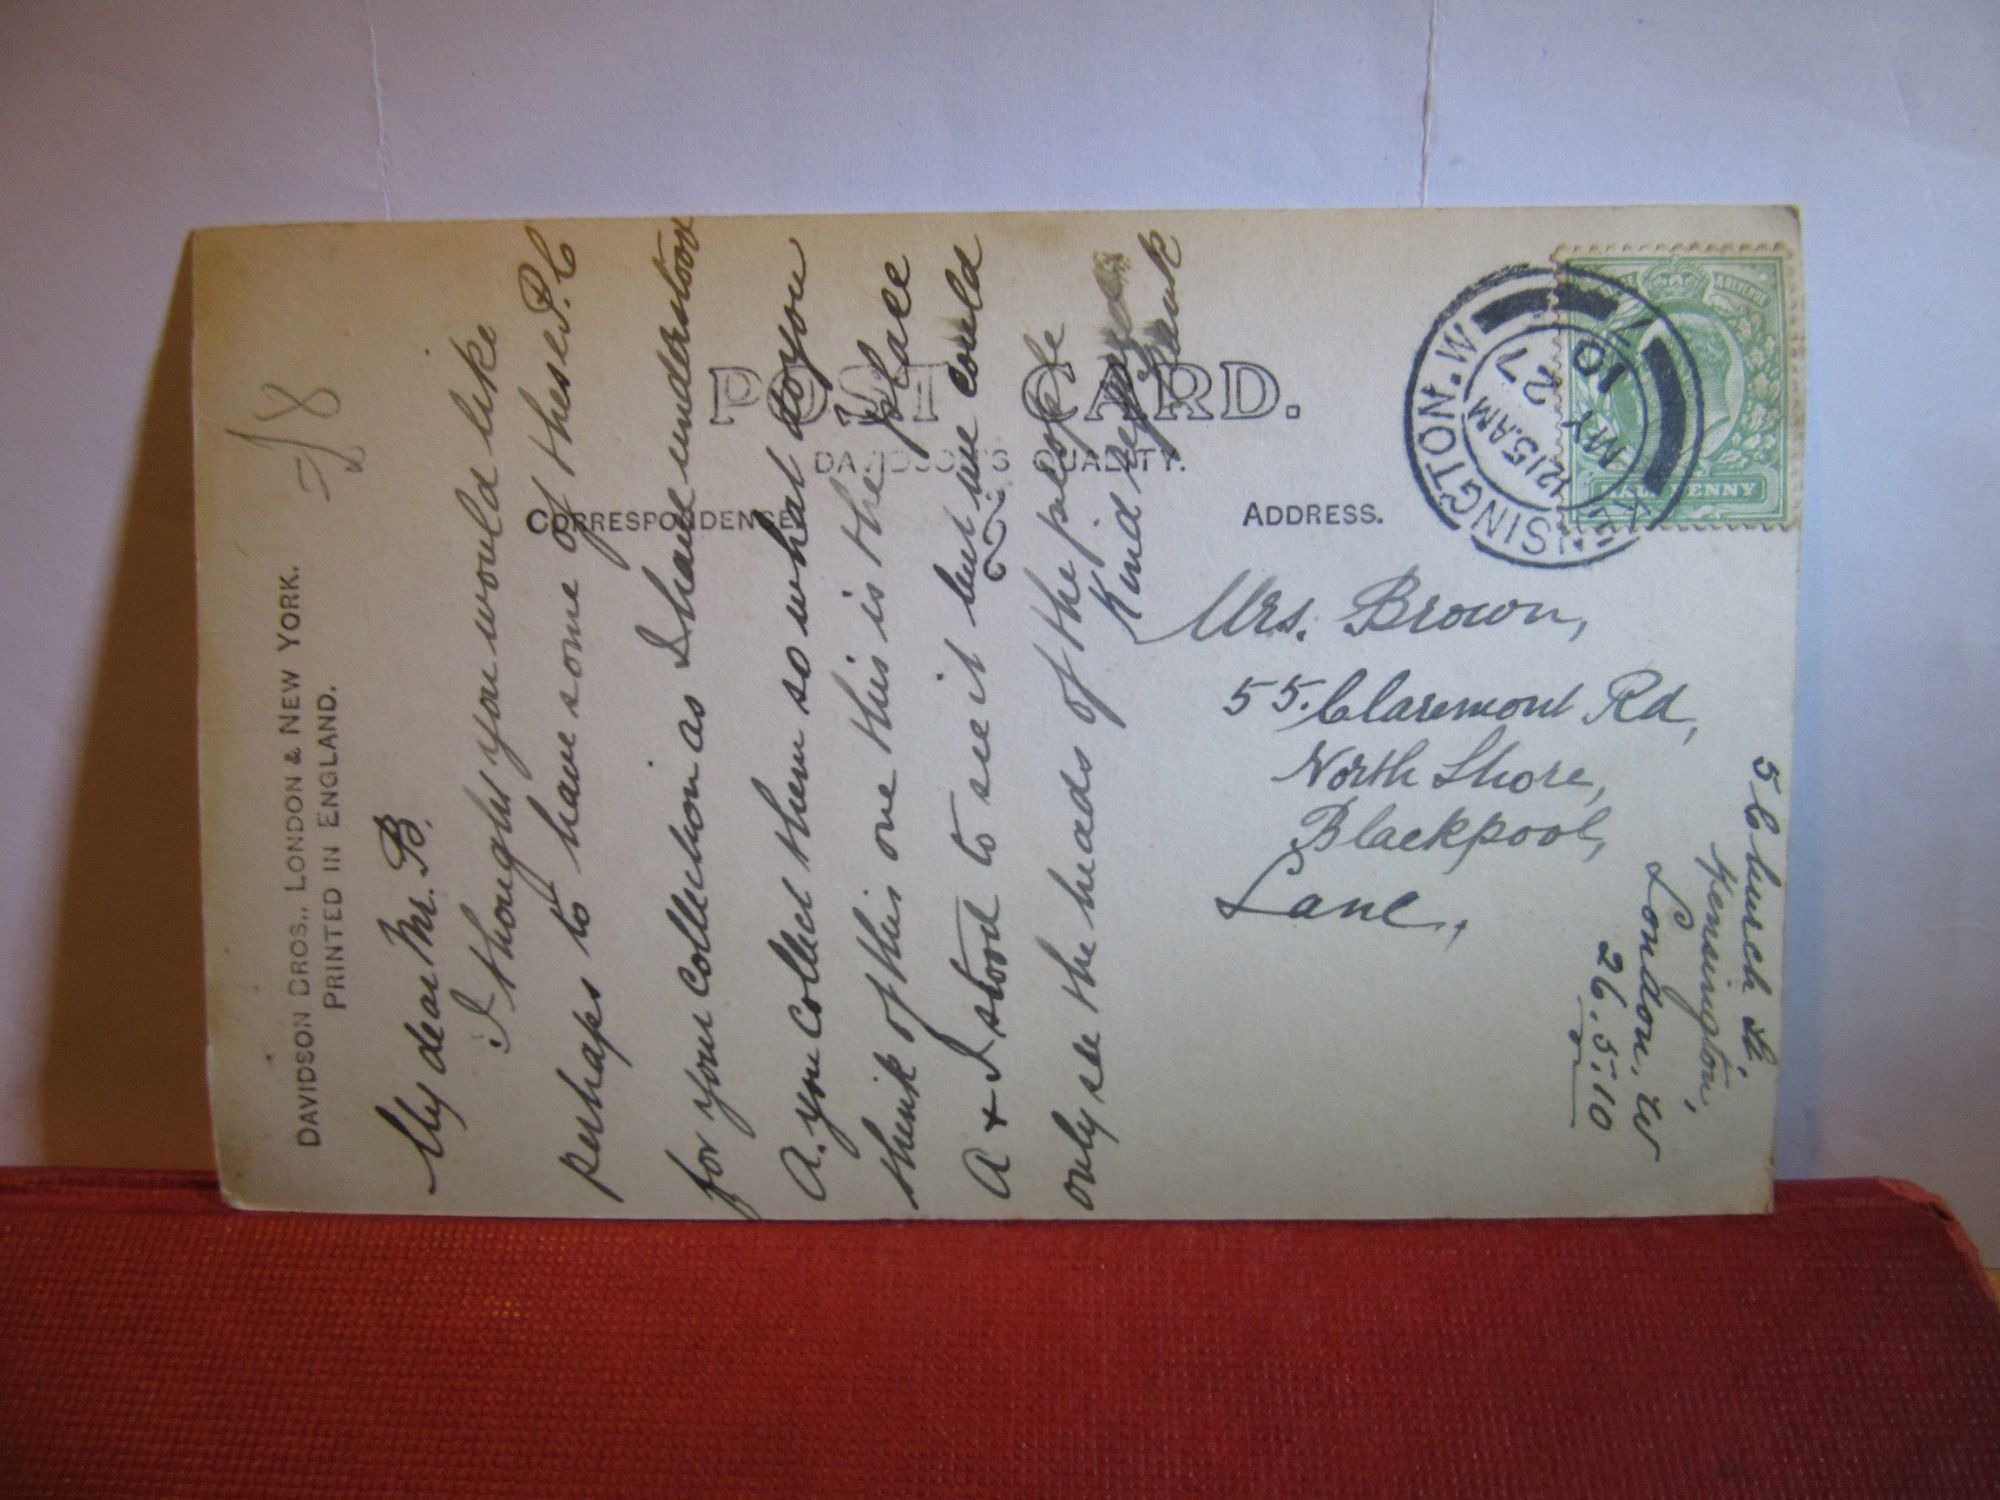 DAVIDSON BROS., LONDON & NEW YORK.
PRINTED IN ENGLAND.
POST CARD.
DAVIDSON'S QUALITY.
CORRESPONDENCE.
ADDRESS.
My dear Mr. B.
I thought you would like
perhaps to have some of these P.C
for your collection as I have understood
A. you collect them so what do you
think of this one this is the place
A & I stood to see it but we could
only see the heads of the people
Kind regards
Frank
Mrs. Brown,
55. Claremont Rd,
North Shore,
Blackpool,
Lanc,
5 Church St,
Kensington,
London, W
26.5.10
KENSINGTON.W
12 15 AM
MY 27
10
HALFPENNY